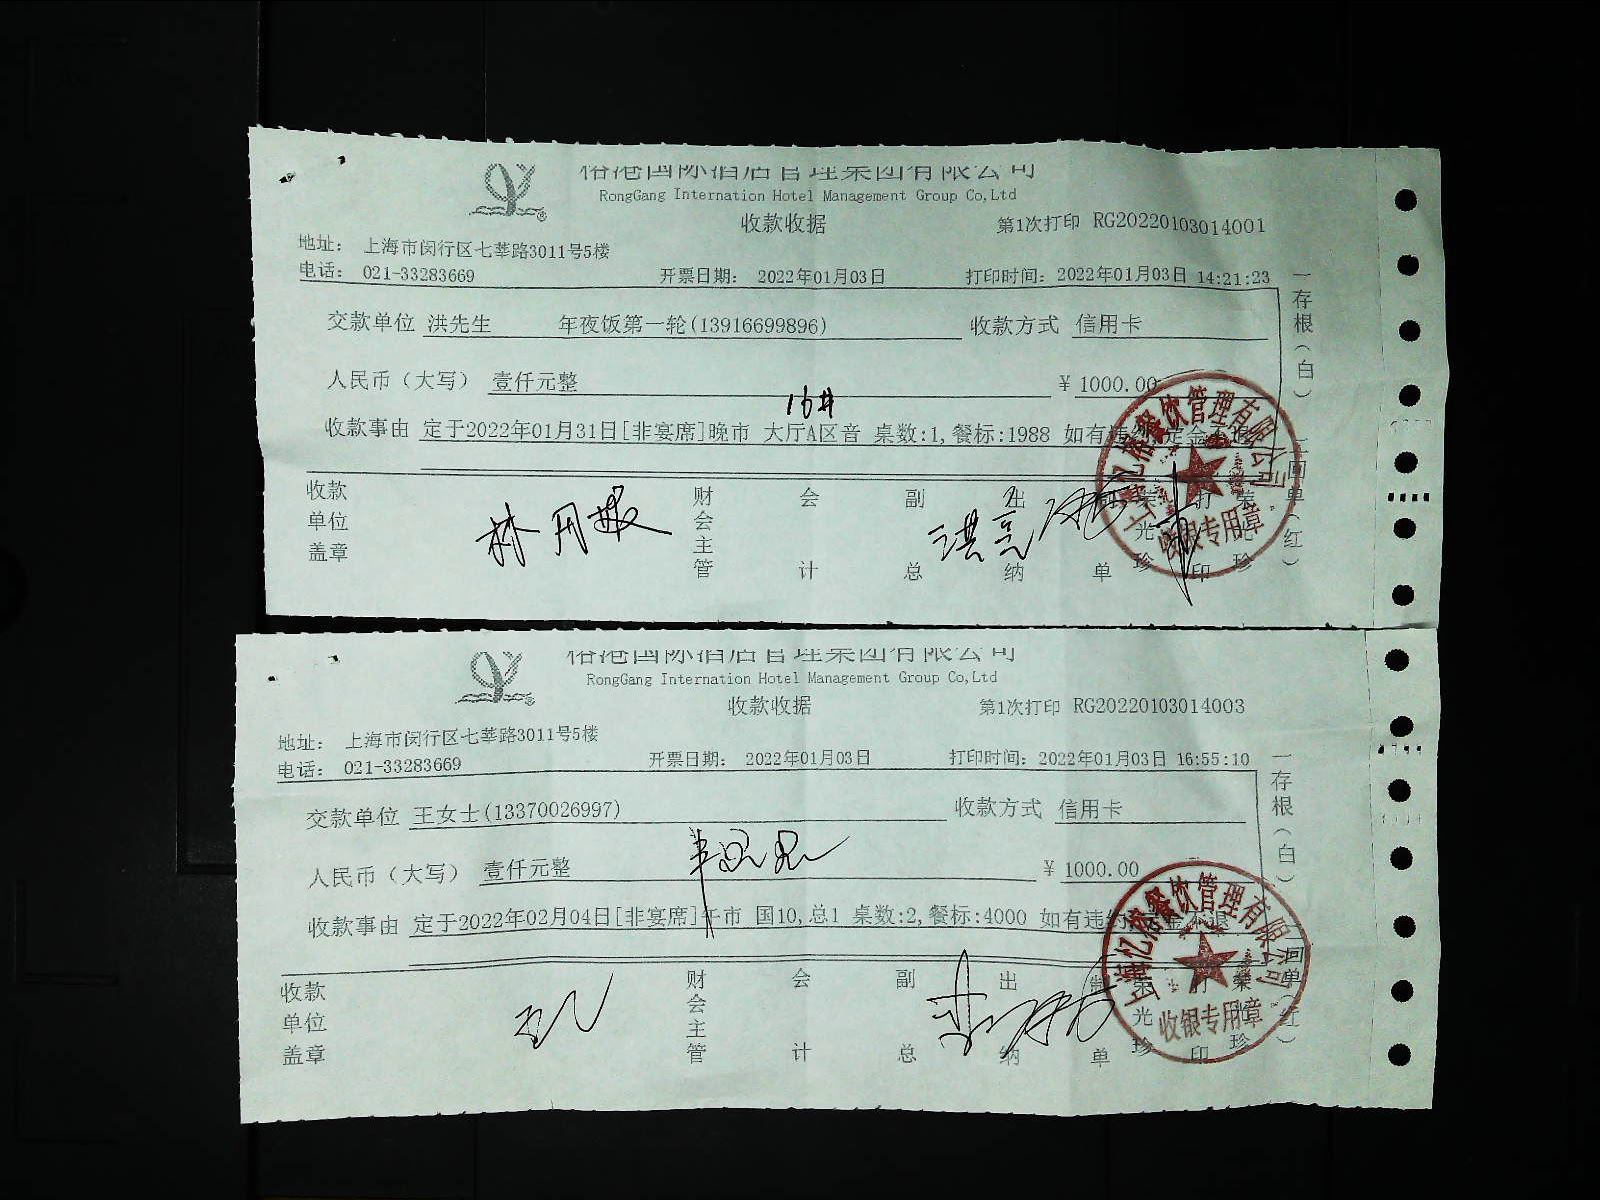 榕港国际酒店管理集团有限公司
RongGang Internation Hotel Management Group Co,Ltd
收款收据 第1次打印 RG20220103014001
地址: 上海市闵行区七莘路3011号5楼
电话: 021-33283669 开票日期: 2022年01月03日 打印时间: 2022年01月03日 14:21:23
交款单位 洪先生 年夜饭第一轮(13916699896) 收款方式 信用卡
人民币(大写) 壹仟元整 ¥ 1000.00
16#
收款事由 定于2022年01月31日[非宴席]晚市 大厅A区音 桌数:1,餐标:1988 如有违约定金不退
收款单位盖章 财会主管 会计 副总 出纳 制单 荣光珍 打印 荣光珍
一存根(白) 二回单(红)
上海忆榕餐饮管理有限公司
收银专用章
榕港国际酒店管理集团有限公司
RongGang Internation Hotel Management Group Co,Ltd
收款收据 第1次打印 RG20220103014003
地址: 上海市闵行区七莘路3011号5楼
电话: 021-33283669 开票日期: 2022年01月03日 打印时间: 2022年01月03日 16:55:10
交款单位 王女士(13370026997) 收款方式 信用卡
人民币(大写) 壹仟元整 ¥ 1000.00
收款事由 定于2022年02月04日[非宴席]午市 国10,总1 桌数:2,餐标:4000 如有违约定金不退
收款单位盖章 财会主管 会计 副总 出纳 制单 荣光珍 打印 荣光珍
一存根(白) 二回单(红)
上海忆榕餐饮管理有限公司
收银专用章